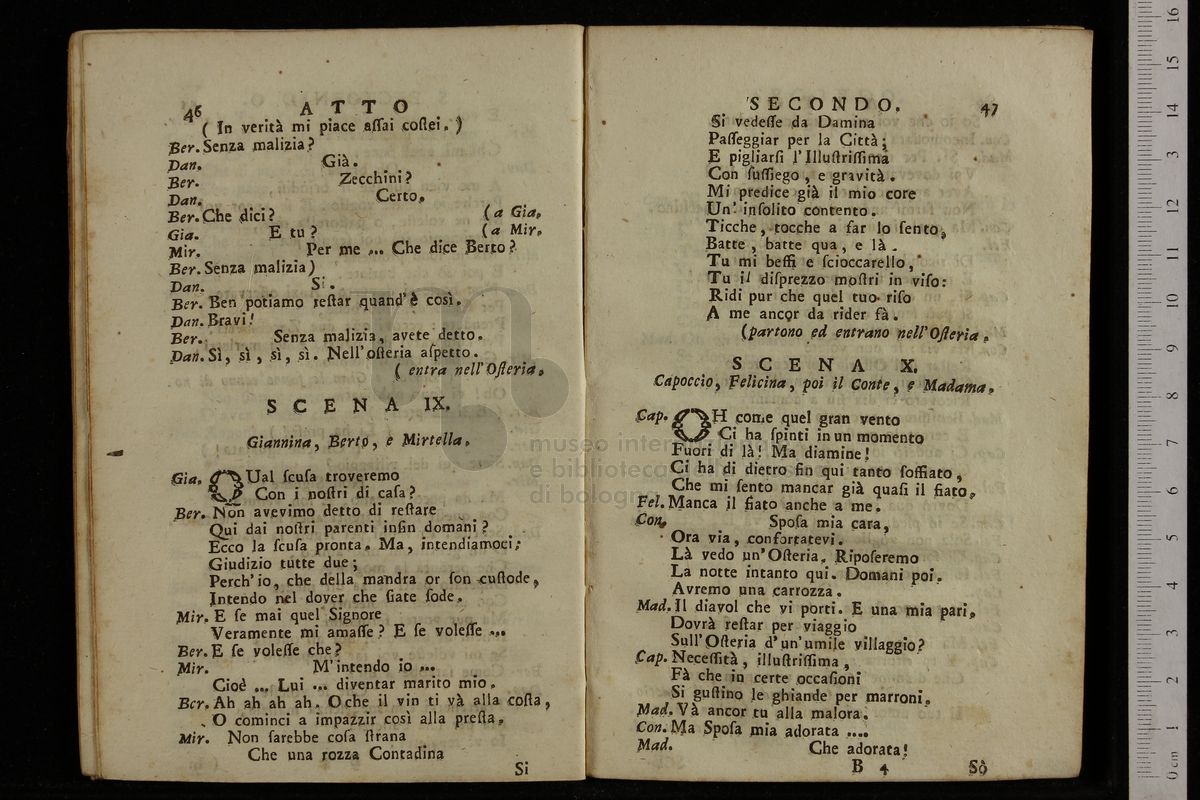 46 ATTO
( In verità mi piace aſſai coſtei. )
Ber. Senza malizia?
Dan. Già.
Ber. Zecchini?
Dan. Certo.
Ber. Che dici? ( a Gia.
Gia. E tu? ( a Mir.
Mir. Per me ... Che dice Berto?
Ber. Senza malizia)
Dan. Si.
Ber. Ben potiamo reſtar quand' è così.
Dan. Bravi!
Ber. Senza malizia, avete detto.
Dan. Sì, sì, sì, sì. Nell'oſteria aſpetto.
( entra nell'Oſteria.
SCENA IX.
Giannina, Berto, e Mirtella.
Gia. QUal ſcuſa troveremo
Con i noſtri di caſa?
Ber. Non avevimo detto di reſtare
Qui dai noſtri parenti inſin domani?
Ecco la ſcuſa pronta. Ma, intendiamoci;
Giudizio tutte due;
Perch'io, che della mandra or ſon cuſtode,
Intendo nel dover che ſiate ſode.
Mir. E ſe mai quel Signore
Veramente mi amaſſe? E ſe voleſſe ...
Ber. E ſe voleſſe che?
Mir. M'intendo io ...
Cioè ... Lui ... diventar marito mio.
Ber. Ah ah ah ah. O che il vin ti và alla coſta,
O cominci a impazzir così alla preſta.
Mir. Non ſarebbe coſa ſtrana
Che una rozza Contadina
Si
SECONDO. 47
Si vedeſſe da Damina
Paſſeggiar per la Città;
E pigliarſi l'Illuſtriſſima
Con ſuſſiego, e gravità.
Mi predice già il mio core
Un' inſolito contento.
Ticche, tocche a far lo ſento,
Batte, batte qua, e là.
Tu mi beffi e ſcioccarello,
Tu il diſprezzo moſtri in viſo:
Ridi pur che quel tuo riſo
A me ancor da rider fà.
(partono ed entrano nell'Oſteria.
SCENA X.
Capoccio, Felicina, poi il Conte, e Madama.
Cap. OH come quel gran vento
Ci ha ſpinti in un momento
Fuori di là! Ma diamine!
Ci ha di dietro fin qui tanto ſoffiato,
Che mi ſento mancar già quaſi il fiato.
Fel. Manca il fiato anche a me.
Con. Spoſa mia cara,
Ora via, confortatevi.
Là vedo un'Oſteria. Ripoſeremo
La notte intanto qui. Domani poi.
Avremo una carrozza.
Mad. Il diavol che vi porti. E una mia pari,
Dovrà reſtar per viaggio
Sull'Oſteria d'un'umile villaggio?
Cap. Neceſſità, illuſtriſſima,
Fà che in certe occaſioni
Si guſtino le ghiande per marroni.
Mad. Và ancor tu alla malora.
Con. Ma Spoſa mia adorata ....
Mad. Che adorata!
B 4 Sò
museo
e biblioteca
di bologna
0 cm 1 2 3 4 5 6 7 8 9 10 11 12 13 14 15 16